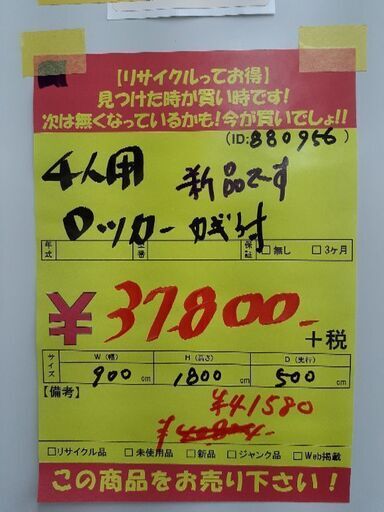 【リサイクルってお得】
見つけた時が買い時です!
次は無くなっているかも!今が買いでしょ!!
(ID:880956)
4人用 新品です
ロッカー カギ付
年式 型番 保証 □無し □3ヶ月
¥37,800-
+税
サイズ W(幅) H(高さ) D(奥行)
900cm 1800cm 500cm
【備考】
¥41580
□リサイクル品 □未使用品 □新品 □ジャンク品 □Web掲載
この商品をお売り下さい!